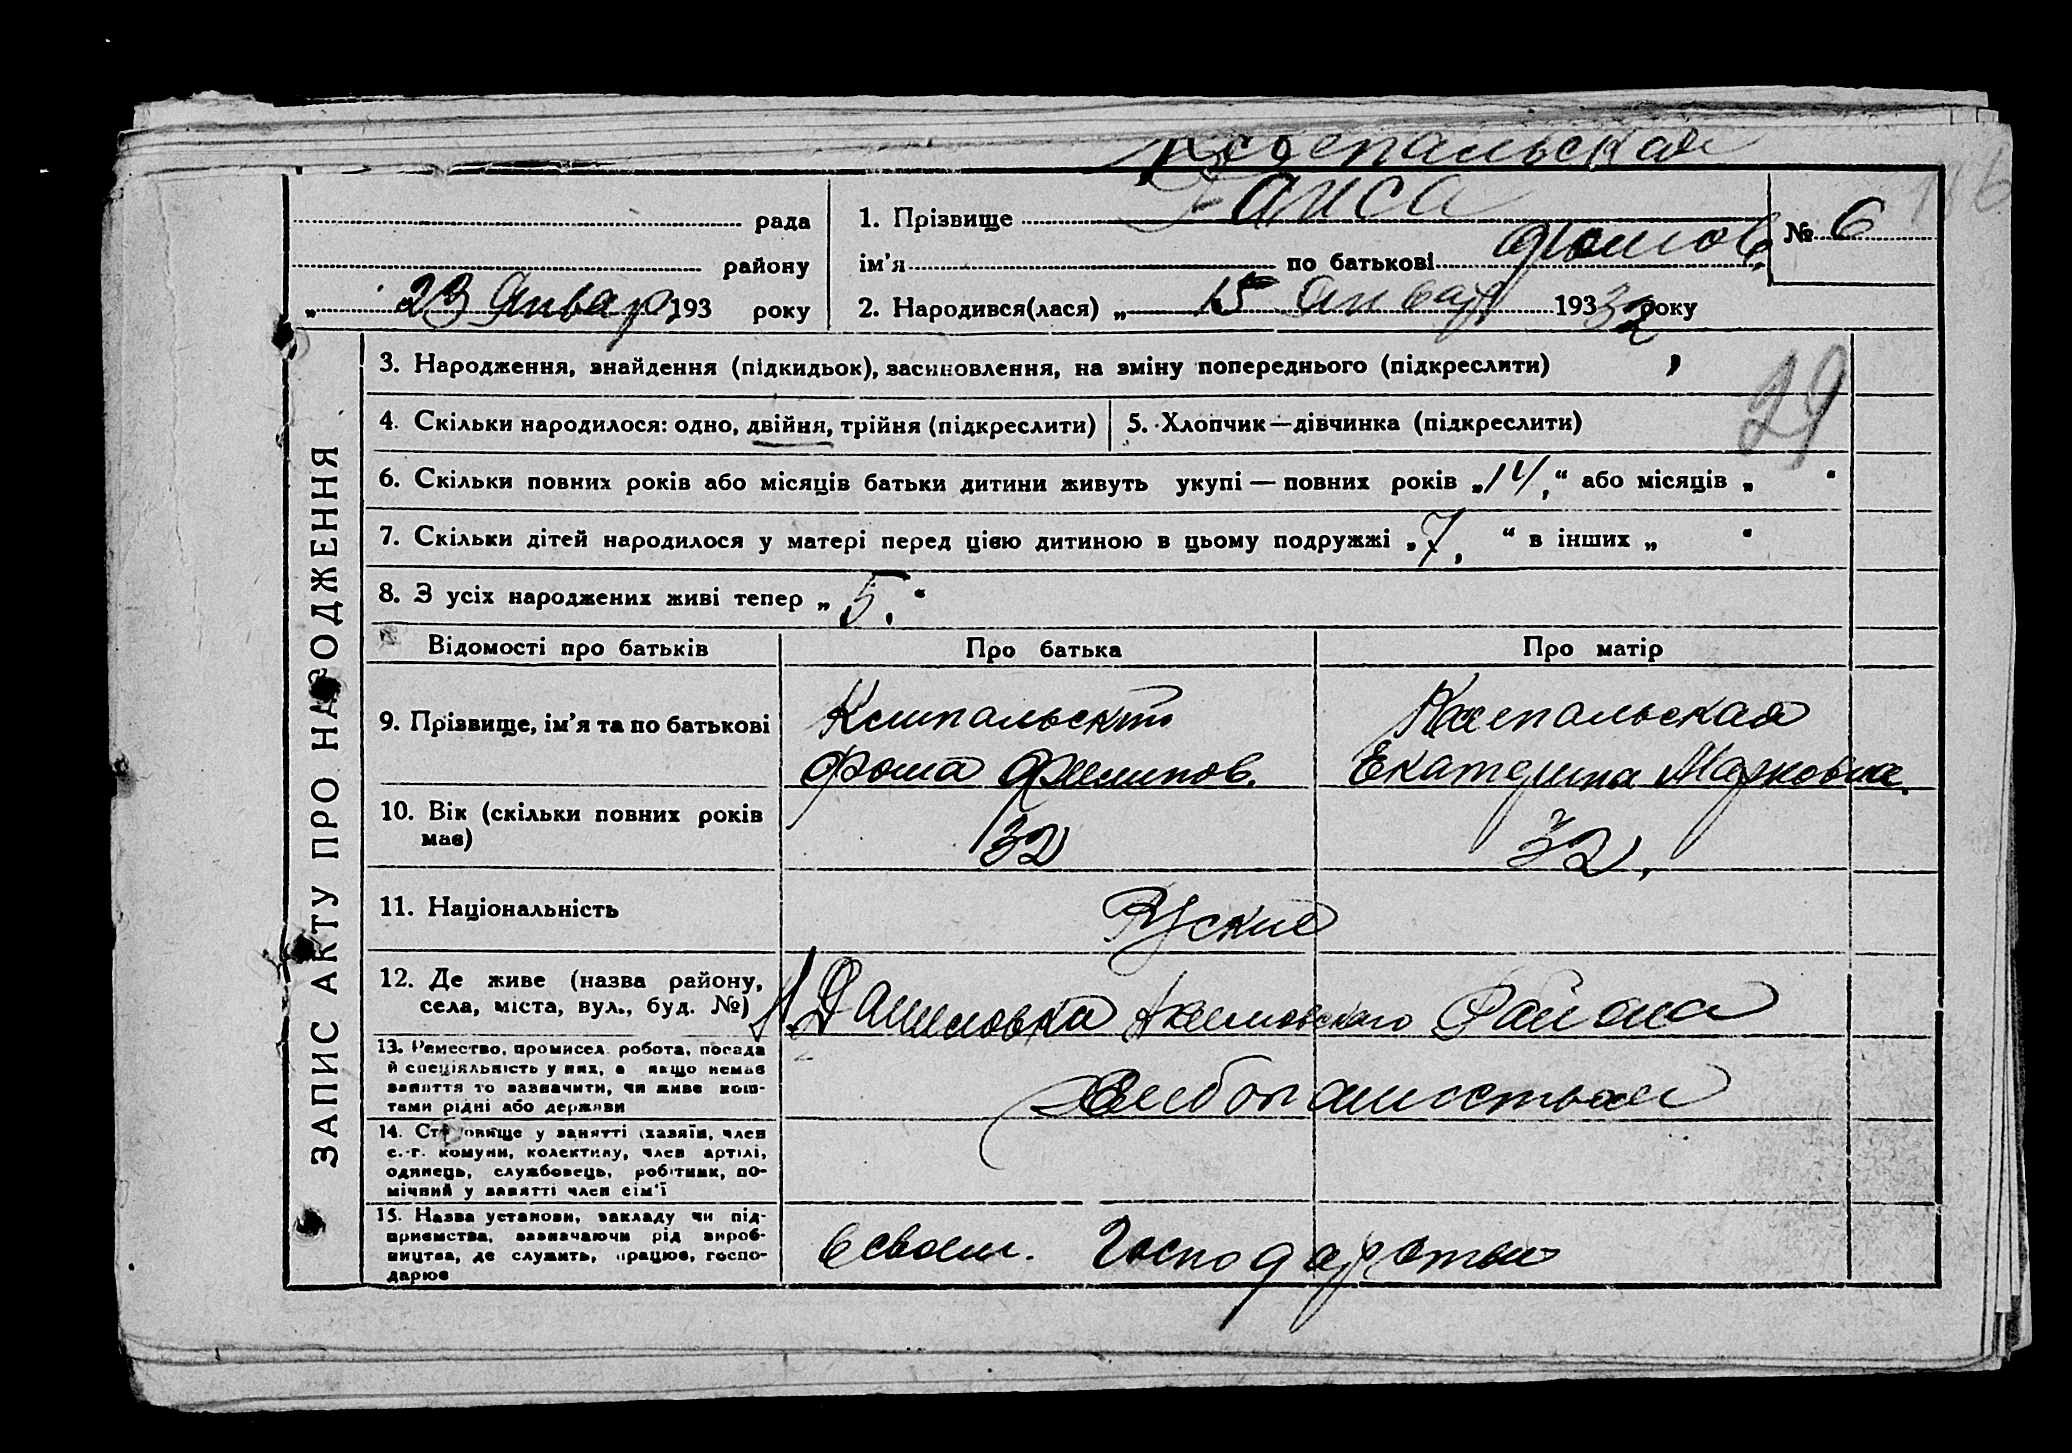 Таиса
рада
1. Прізвище
№ 6
району
ім'я по батькові Фомов.
„ 23 Январ, 193 року
2. Народився(лася) „ 15 Январ, 1932 року
ЗАПИС АКТУ ПРО НАРОДЖЕННЯ
3. Народження, знайдення (підкидьок), засиновлення, на зміну попереднього (підкреслити)
29
4. Скільки народилося: одно, двійня, трійня (підкреслити)
5. Хлопчик—дівчинка (підкреслити)
6. Скільки повних років або місяців батьки дитини живуть укупі — повних років „14,“ або місяців „ “
7. Скільки дітей народилося у матері перед цією дитиною в цьому подружжі „7, “ в інших „ “
8. З усіх народжених живі тепер „5.“
Відомості про батьків
Про батька
Про матір
9. Прізвище, ім'я та по батькові
Фома Филипов.
Екатерина Марковна.
10. Вік (скільки повних років має)
32
32,
11. Національність
Руские
12. Де живе (назва району, села, міста, вул., буд. №)
Даниловка Акимовского Района
13. Ремество, промисел, робота, посада й спеціяльність у них, а якщо немає заняття то зазначити, чи живе коштами рідні або держави
Хлебопашеством
14. Становище у занятті (хазяїн, член с.-г. комуни, колективу, член артілі, одинець, службовець, робітник, помічний у занятті член сім'ї
15. Назва установи, закладу чи підприємства, зазначаючи рід виробництва, де служить, працює, господарює
в своем. Господарстве